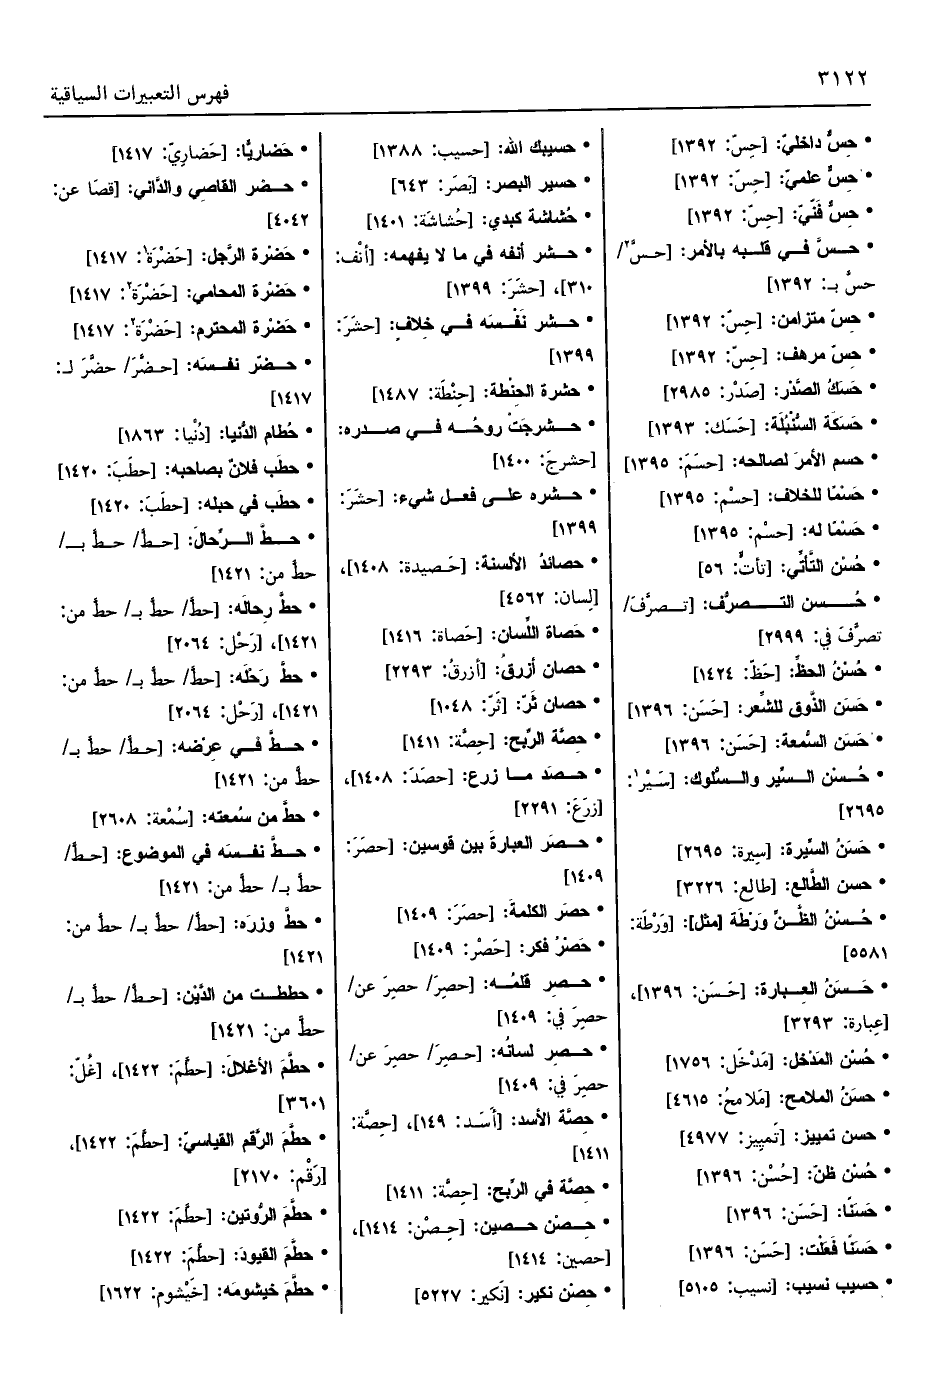 ٣١٢٢
فهرس التعبيرات السياقية
• حسٌّ داخليّ: [حِسّ: ١٣٩٢]
• حسٌّ علميّ: [حِسّ: ١٣٩٢]
• حسٌّ فَنّيّ: [حِسّ: ١٣٩٢]
• حـسَّ فـي قلـبه بالأمر: [حـسَّ٢/
حسَّ بـ: ١٣٩٢]
• حسّ متزامن: [حِسّ: ١٣٩٢]
• حسّ مرهف: [حِسّ: ١٣٩٢]
• حَسَكُ الصَّدْر: [صَدْر: ٢٩٨٥]
• حَسَكَة السُّنْبُلَة: [حَسَك: ١٣٩٣]
• حسم الأمرَ لصالحه: [حسَمَ: ١٣٩٥]
• حَسْمًا للخلاف: [حسْم: ١٣٩٥]
• حَسْمًا له: [حسْم: ١٣٩٥]
• حُسْن التَّأتّي: [تأتٍّ: ٥٦]
• حُـسن التـصرُّف: [تـصرَّفَ/
تصرَّفَ في: ٢٩٩٩]
• حُسْنُ الحظِّ: [حَظّ: ١٤٢٤]
• حَسَن الذَّوق للشِّعر: [حَسَن: ١٣٩٦]
• حَسَن السُّمعة: [حَسَن: ١٣٩٦]
• حُـسْن الـسَّير والـسُّلوك: [سَـيْر١:
٢٦٩٥]
• حَسَنُ السِّيرة: [سِيرة: ٢٦٩٥]
• حسن الطَّالع: [طالع: ٣٢٢٦]
• حُـسْنُ الظَّـنِّ وَرْطَة [مثل]: [وَرْطَة:
٥٥٨١]
• حَـسَنُ العـبارة: [حَـسَن: ١٣٩٦]،
[عِبارة: ٣٢٩٣]
• حُسْن المَدْخل: [مَدْخَل: ١٧٥٦]
• حسَنُ الملامح: [مَلامحُ: ٤٦١٥]
• حسن تمييز: [تَمييز: ٤٩٧٧]
• حُسْن ظنّ: [حُسْن: ١٣٩٦]
• حَسَنًا: [حَسَن: ١٣٩٦]
• حَسَنًا فَعَلْت: [حَسَن: ١٣٩٦]
• حسيب نسيب: [نسيب: ٥١٠٥]
• حسيبك الله: [حسيب: ١٣٨٨]
• حسير البصر: [بَصَر: ٦٤٣]
• حُشاشة كبدي: [حُشاشَة: ١٤٠١]
• حـشر أنفه في ما لا يفهمه: [أنْف:
٣١٠]، [حشَرَ: ١٣٩٩]
• حـشر نَفْـسَه فـي خلاف: [حشَرَ:
١٣٩٩]
• حشرة الحنْطة: [حِنْطَة: ١٤٨٧]
• حـشرجَتْ روحُـه فـي صـدره:
[حشرجَ: ١٤٠٠]
• حـشره علـى فعـل شيء: [حشَرَ:
١٣٩٩]
• حصائدُ الألسنة: [حَـصيدة: ١٤٠٨]،
[لِسان: ٤٥٦٢]
• حَصاة اللِّسان: [حَصاة: ١٤١٦]
• حصان أزرقُ: [أزرقُ: ٢٢٩٣]
• حصان ثَرّ: [ثَرّ: ١٠٤٨]
• حِصَّة الرِّبح: [حِصَّة: ١٤١١]
• حـصَد مـا زرع: [حصَدَ: ١٤٠٨]،
[زرَعَ: ٢٢٩١]
• حـصَر العبارةَ بين قوسين: [حصَرَ:
١٤٠٩]
• حصَر الكلمةَ: [حصَرَ: ١٤٠٩]
• حَصْرُ فكر: [حَصْر: ١٤٠٩]
• حـصِر قلمُـه: [حصِرَ/ حصِرَ عن/
حصِرَ في: ١٤٠٩]
• حـصِر لسانُه: [حـصِرَ/ حصِرَ عن/
حصِرَ في: ١٤٠٩]
• حصَّة الأسد: [أسَـد: ١٤٩]، [حِصَّة:
١٤١١]
• حِصَّة في الرِّبح: [حِصَّة: ١٤١١]
• حِـصْن حـصين: [حِـصْن: ١٤١٤]،
[حصين: ١٤١٤]
• حصْن نكير: [نَكير: ٥٢٢٧]
• حَضاريًّا: [حَضاريّ: ١٤١٧]
• حـضر القاصي والدَّاني: [قصَا عن:
٤٠٤٢]
• حَضْرة الرَّجل: [حَضْرَة١: ١٤١٧]
• حَضْرة المحامي: [حَضْرَة٢: ١٤١٧]
• حَضْرة المحترم: [حَضْرَة٢: ١٤١٧]
• حـضّر نفـسَه: [حـضَّرَ/ حضَّرَ لـ:
١٤١٧]
• حُطام الدُّنيا: [دُنْيا: ١٨٦٣]
• حطَب فلانٌ بصاحبه: [حطَبَ: ١٤٢٠]
• حطَب في حبله: [حطَبَ: ١٤٢٠]
• حـطَّ الـرِّحالَ: [حـطَّ/ حـطَّ بـ/
حطَّ من: ١٤٢١]
• حطَّ رِحالَه: [حطَّ/ حطَّ بـ/ حطَّ من:
١٤٢١]، [رَحْل: ٢٠٦٤]
• حطَّ رَحْلَه: [حطَّ/ حطَّ بـ/ حطَّ من:
١٤٢١]، [رَحْل: ٢٠٦٤]
• حـطَّ فـي عِرْضه: [حـطَّ/ حطَّ بـ/
حطَّ من: ١٤٢١]
• حطَّ من سُمعته: [سُمْعة: ٢٦٠٨]
• حـطَّ نفـسَه في الموضوع: [حـطَّ/
حطَّ بـ/ حطَّ من: ١٤٢١]
• حطَّ وزرَه: [حطَّ/ حطَّ بـ/ حطَّ من:
١٤٢١]
• حططـت من الدَّيْن: [حـطَّ/ حطَّ بـ/
حطَّ من: ١٤٢١]
• حطَّمَ الأغلالَ: [حطَّمَ: ١٤٢٢]، [غُلّ:
٣٦٠١]
• حطَّمَ الرَّقم القياسيّ: [حطَّمَ: ١٤٢٢]،
[رَقْم: ٢١٧٠]
• حطَّمَ الرُّوتين: [حطَّمَ: ١٤٢٢]
• حطَّمَ القيودَ: [حطَّمَ: ١٤٢٢]
• حطَّمَ خيشومَه: [خَيْشوم: ١٦٢٢]